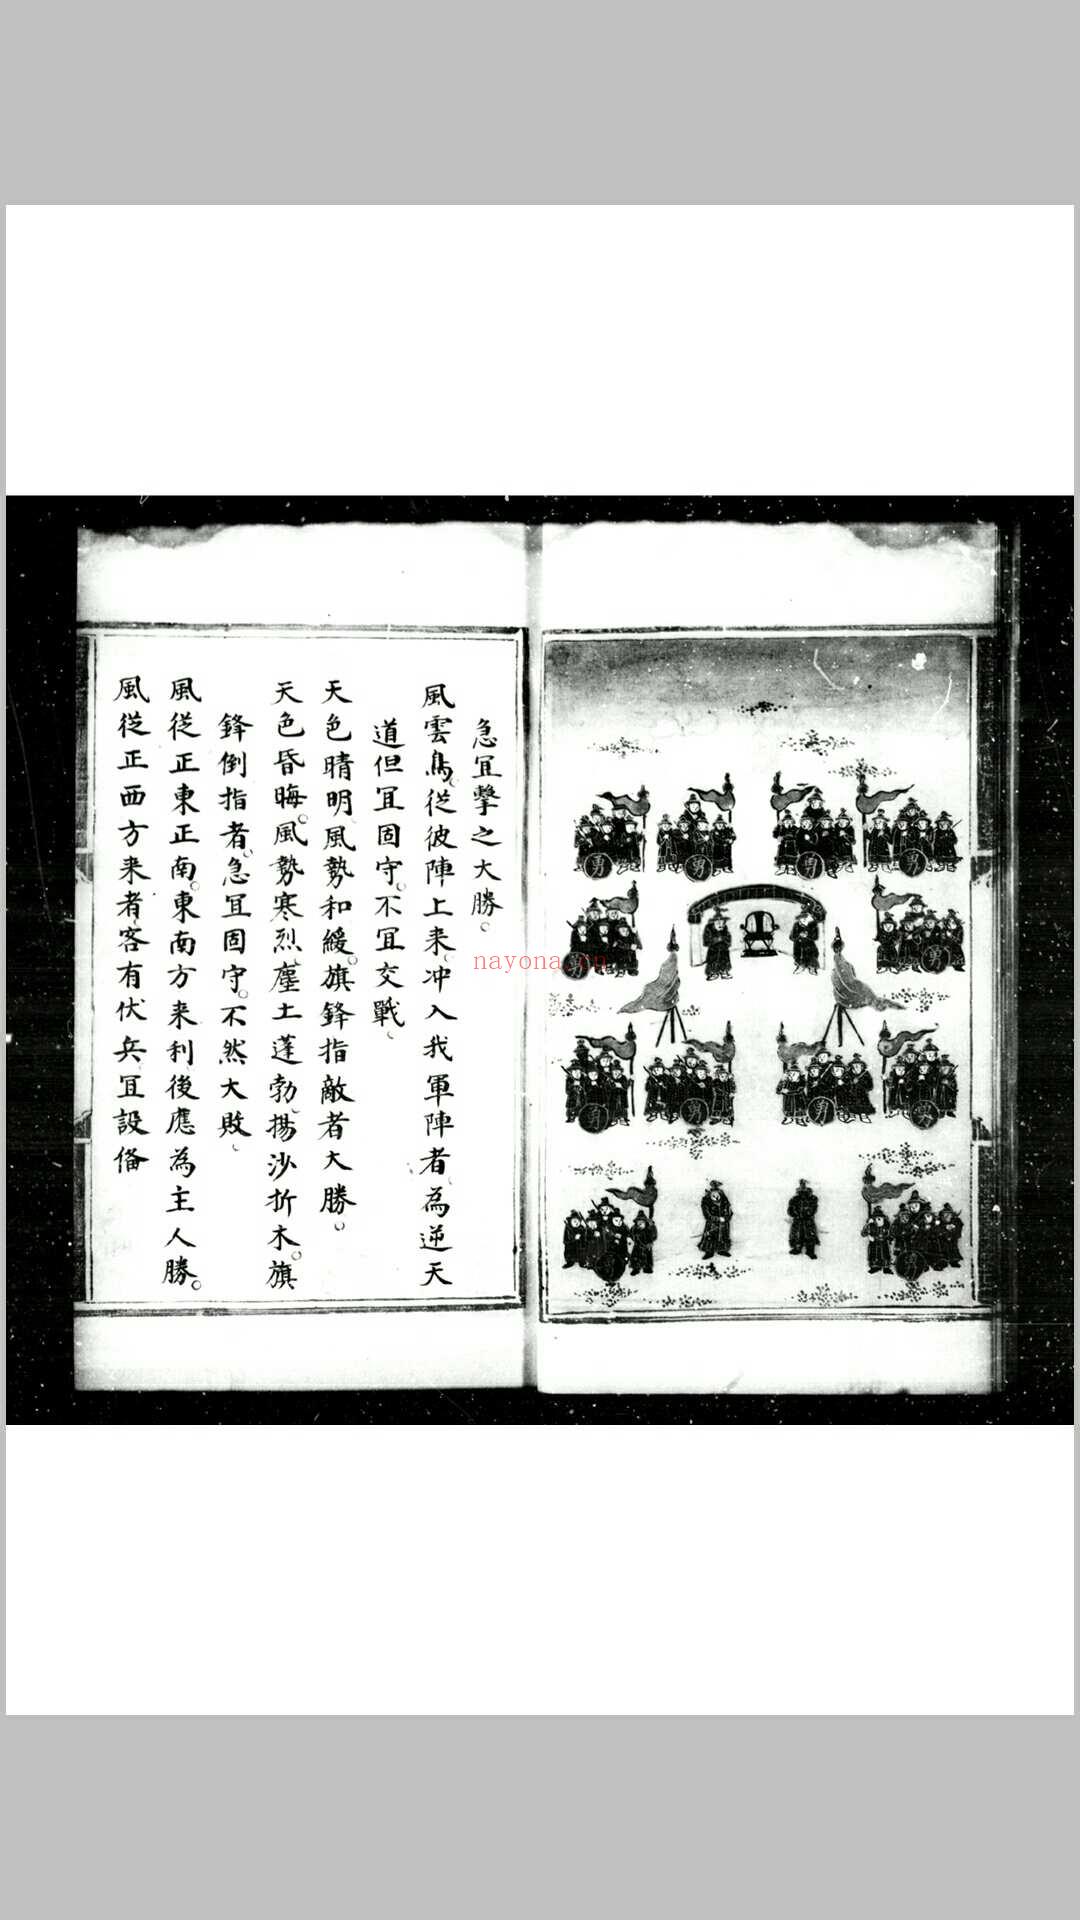 勇 勇 勇 勇
勇 勇
勇 勇 勇 勇
急冝擊之大勝。
風雲鳥、從彼陣上来、冲入我軍陣者、為逆天
道但冝固守。不冝交戰、
天色晴明、風勢和緩。旗鋒指敵者大勝。
天色昏晦。風勢寒烈、塵土蓬勃、揚沙折木。旗
鋒倒指者、急冝固守。不然大敗、
風從正東正南。東南方来利、後應為主人勝。
風從正西方来者、客有伏兵、冝設俻
nayona.cn